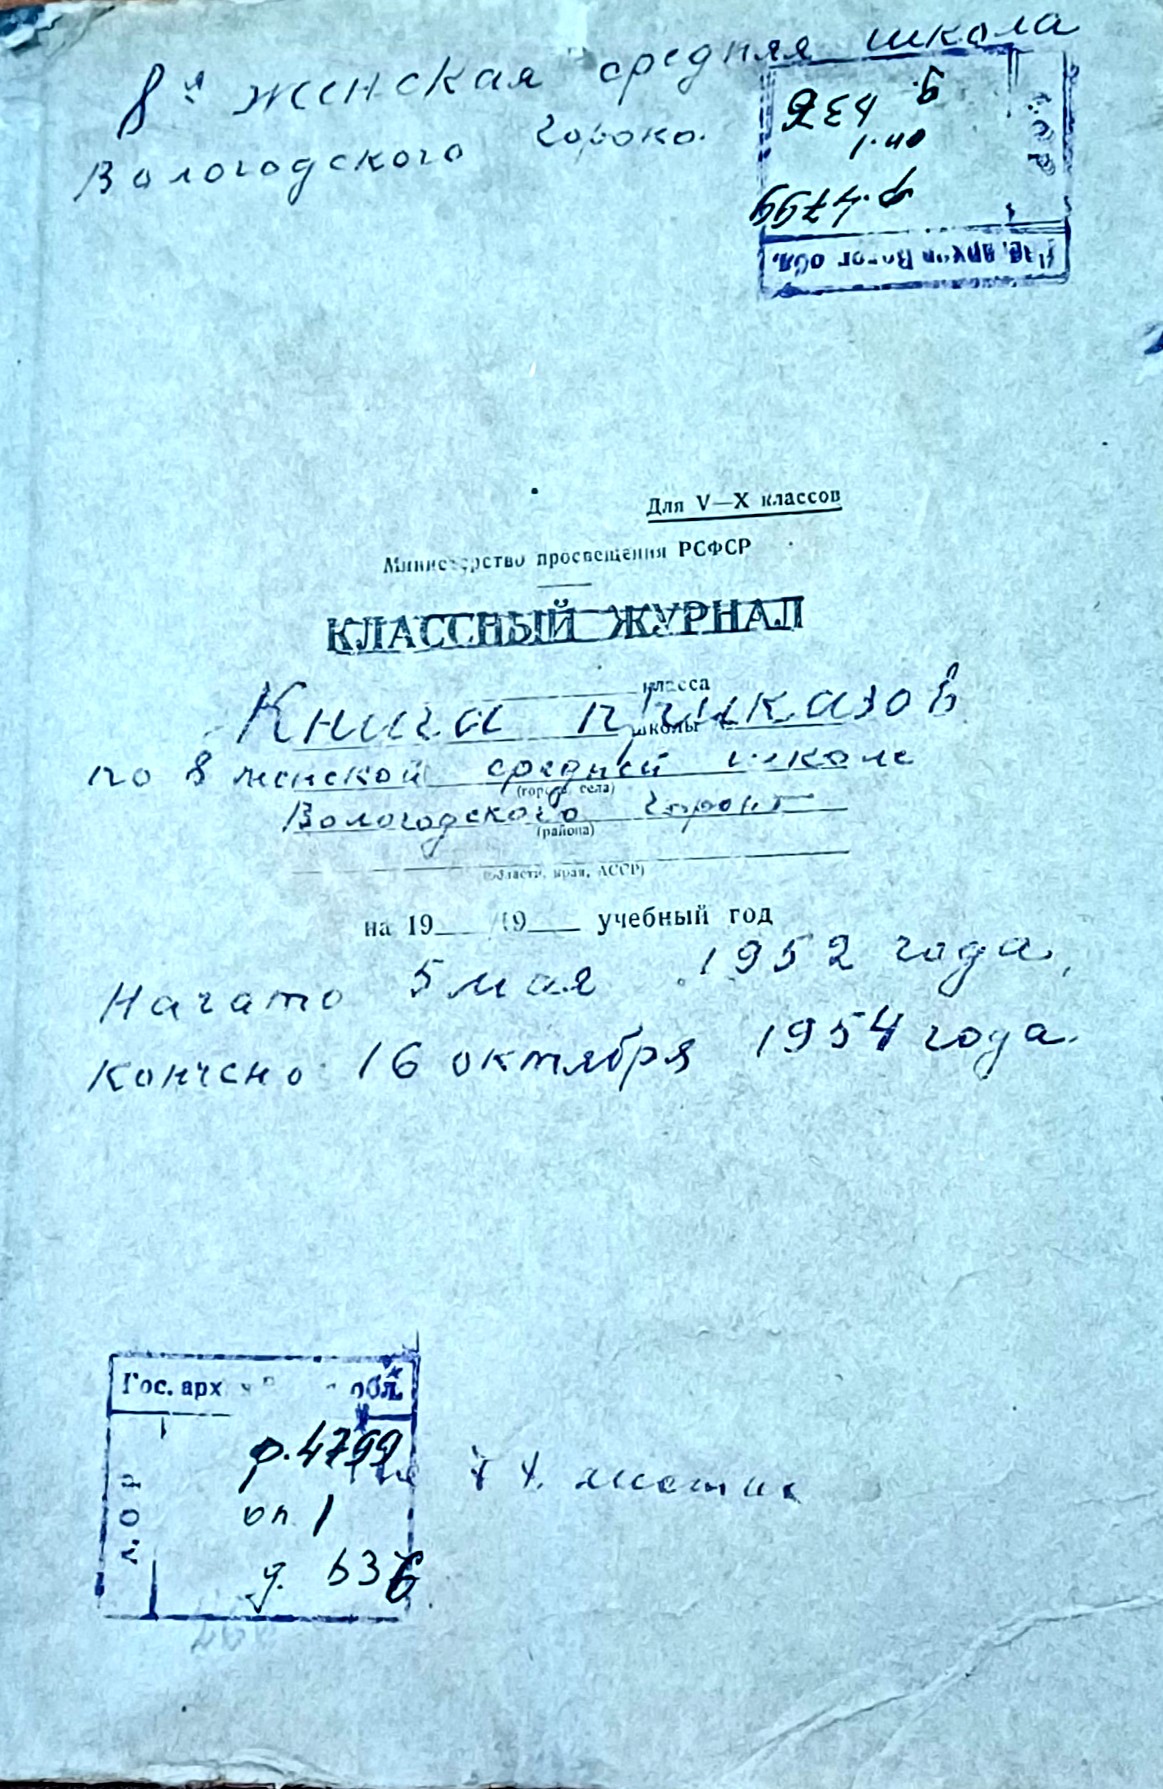 8я женская средняя школа
Вологодского Гороно.
д. 636
оп. 1
ф. 4799
Гос. архив Волог. обл.
Для V—X классов
Министерство просвещения РСФСР
КЛАССНЫЙ ЖУРНАЛ
класса
Книга приказов
школы
по 8 женской средней школе
(города, села)
Вологодского Гороно
(района)
(области, края, АССР)
на 19__ /19__ учебный год
Начато 5 мая 1952 года,
Кончено 16 октября 1954 года.
Гос. арх обл.
ф. 4799
оп. 1
д. 636
листик